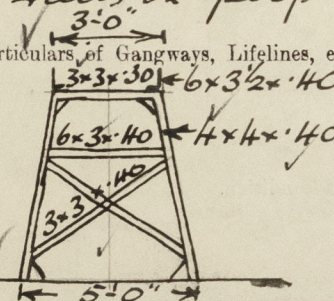 3'-0"
rticulars of Gangways, Lifelines, e
3×3×·30 6×3½×·40
6×3×·40 4×4×·40
3×3×·40
5'-0"